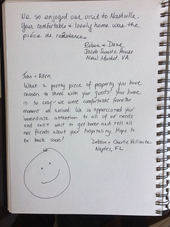 We so enjoyed our visit to Nashville.
Your comfortable + lovely home was the
pièce de résistance.
Robin + Dave,
New Market, VA
What a pretty piece of property you have
chosen to share with your guests! Your home
is so cozy - we were comfortable from the
moment we arrived. We so appreciated your
immediate attention to all of our needs
and can't wait to get home and tell all
our friends about your hospitality. Hope to
be back soon!
Debbie + Charlie
Naples, FL